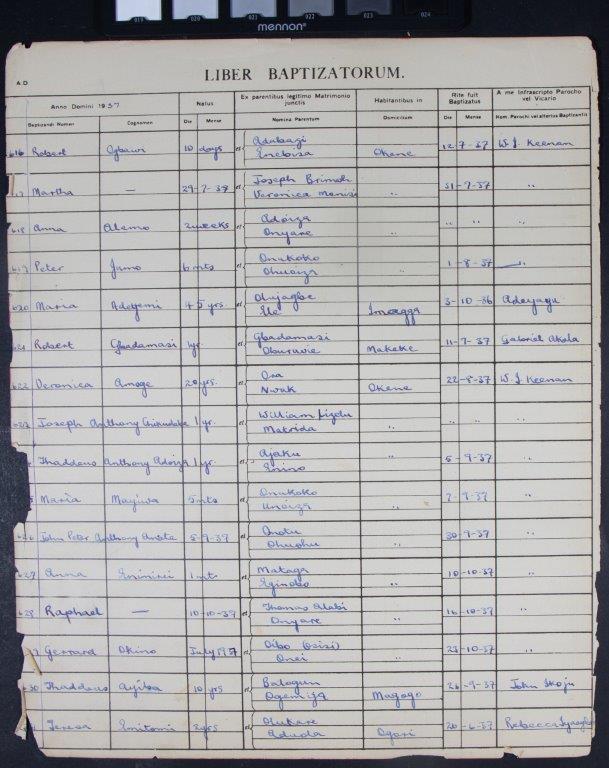 019 020 021 022 023 024
mennon
A.D
LIBER BAPTIZATORUM.
Anno Domini 1937 Natus Ex parentibus legitimo Matrimonio junctis Habitantibus in Rite fuit Baptizatus A me Infrascripto Parocho vel Vicario
Baptizandi Nomen Cognomen Die Mense Nomina Parentum Domicilium Die Mense Nom. Parochi vel alterius Baptizantis
616 Robert 10 days et Adabazi Enebiza Okene 12-7-37 W. J. Keenan
Martha — 29-7-38 et Joseph Brimoh Veronica ,, 31-7-37 ,,
618 Anna Alemo 2 weeks et Adoiza Onyare ,, ,, ,, ,,
619 Peter Jumo 6 mts et Onukoko Ohuoiza ,, 1-8-37
620 Maria Adeyemi 45 yrs. et Olujagboe Ele 3-10-36 Adeyagu
621 Robert Gbadamasi 1 yr. et Gbadamasi Oburuvie Makeke 11-7-37 Gabriel Akola
622 Veronica Amoge 20 yrs. et Osa Nwuk Okene 22-8-37 W J Keenan
Joseph Anthony 1 yr. et William Matrida ,, ,, ,, ,,
Thaddeus Anthony Adoiza 1 yr. et Ajaku Enino ,, 5-9-37 ,,
Maria Mayiwa 5 mts et Onukoko Unoiza ,, 7-9-37 ,,
626 John Peter Anthony 5-9-37 et Onotu Ohuohu ,, 30-9-37 ,,
627 Anna 1 mt. et Mataga Eginobo ,, 10-10-37 ,,
628 Raphael — 10-10-37 et Thomas Alabi Onyare ,, 16-10-37 ,,
Gerrard Okino July 1937 et Oibo (Osizi) Onei ,, 23-10-37 ,,
630 Thaddeus Ayiba 10 yrs et Balogun Magogo 26-9-37 John Ikoju
Teresa Emitomi 2 yrs et Olukare Aduda Ogori 20-6-37 Rebecca